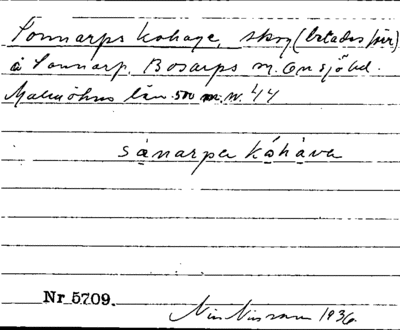 Sonnarps kohage, skog (betades förr)
å Sonnarp. Bosarps sn. Onsjö hd.
Malmöhus län. 500 m. N. 44
sånarpa kåhava
Nr 5709.
Nils Nilsson 1936.